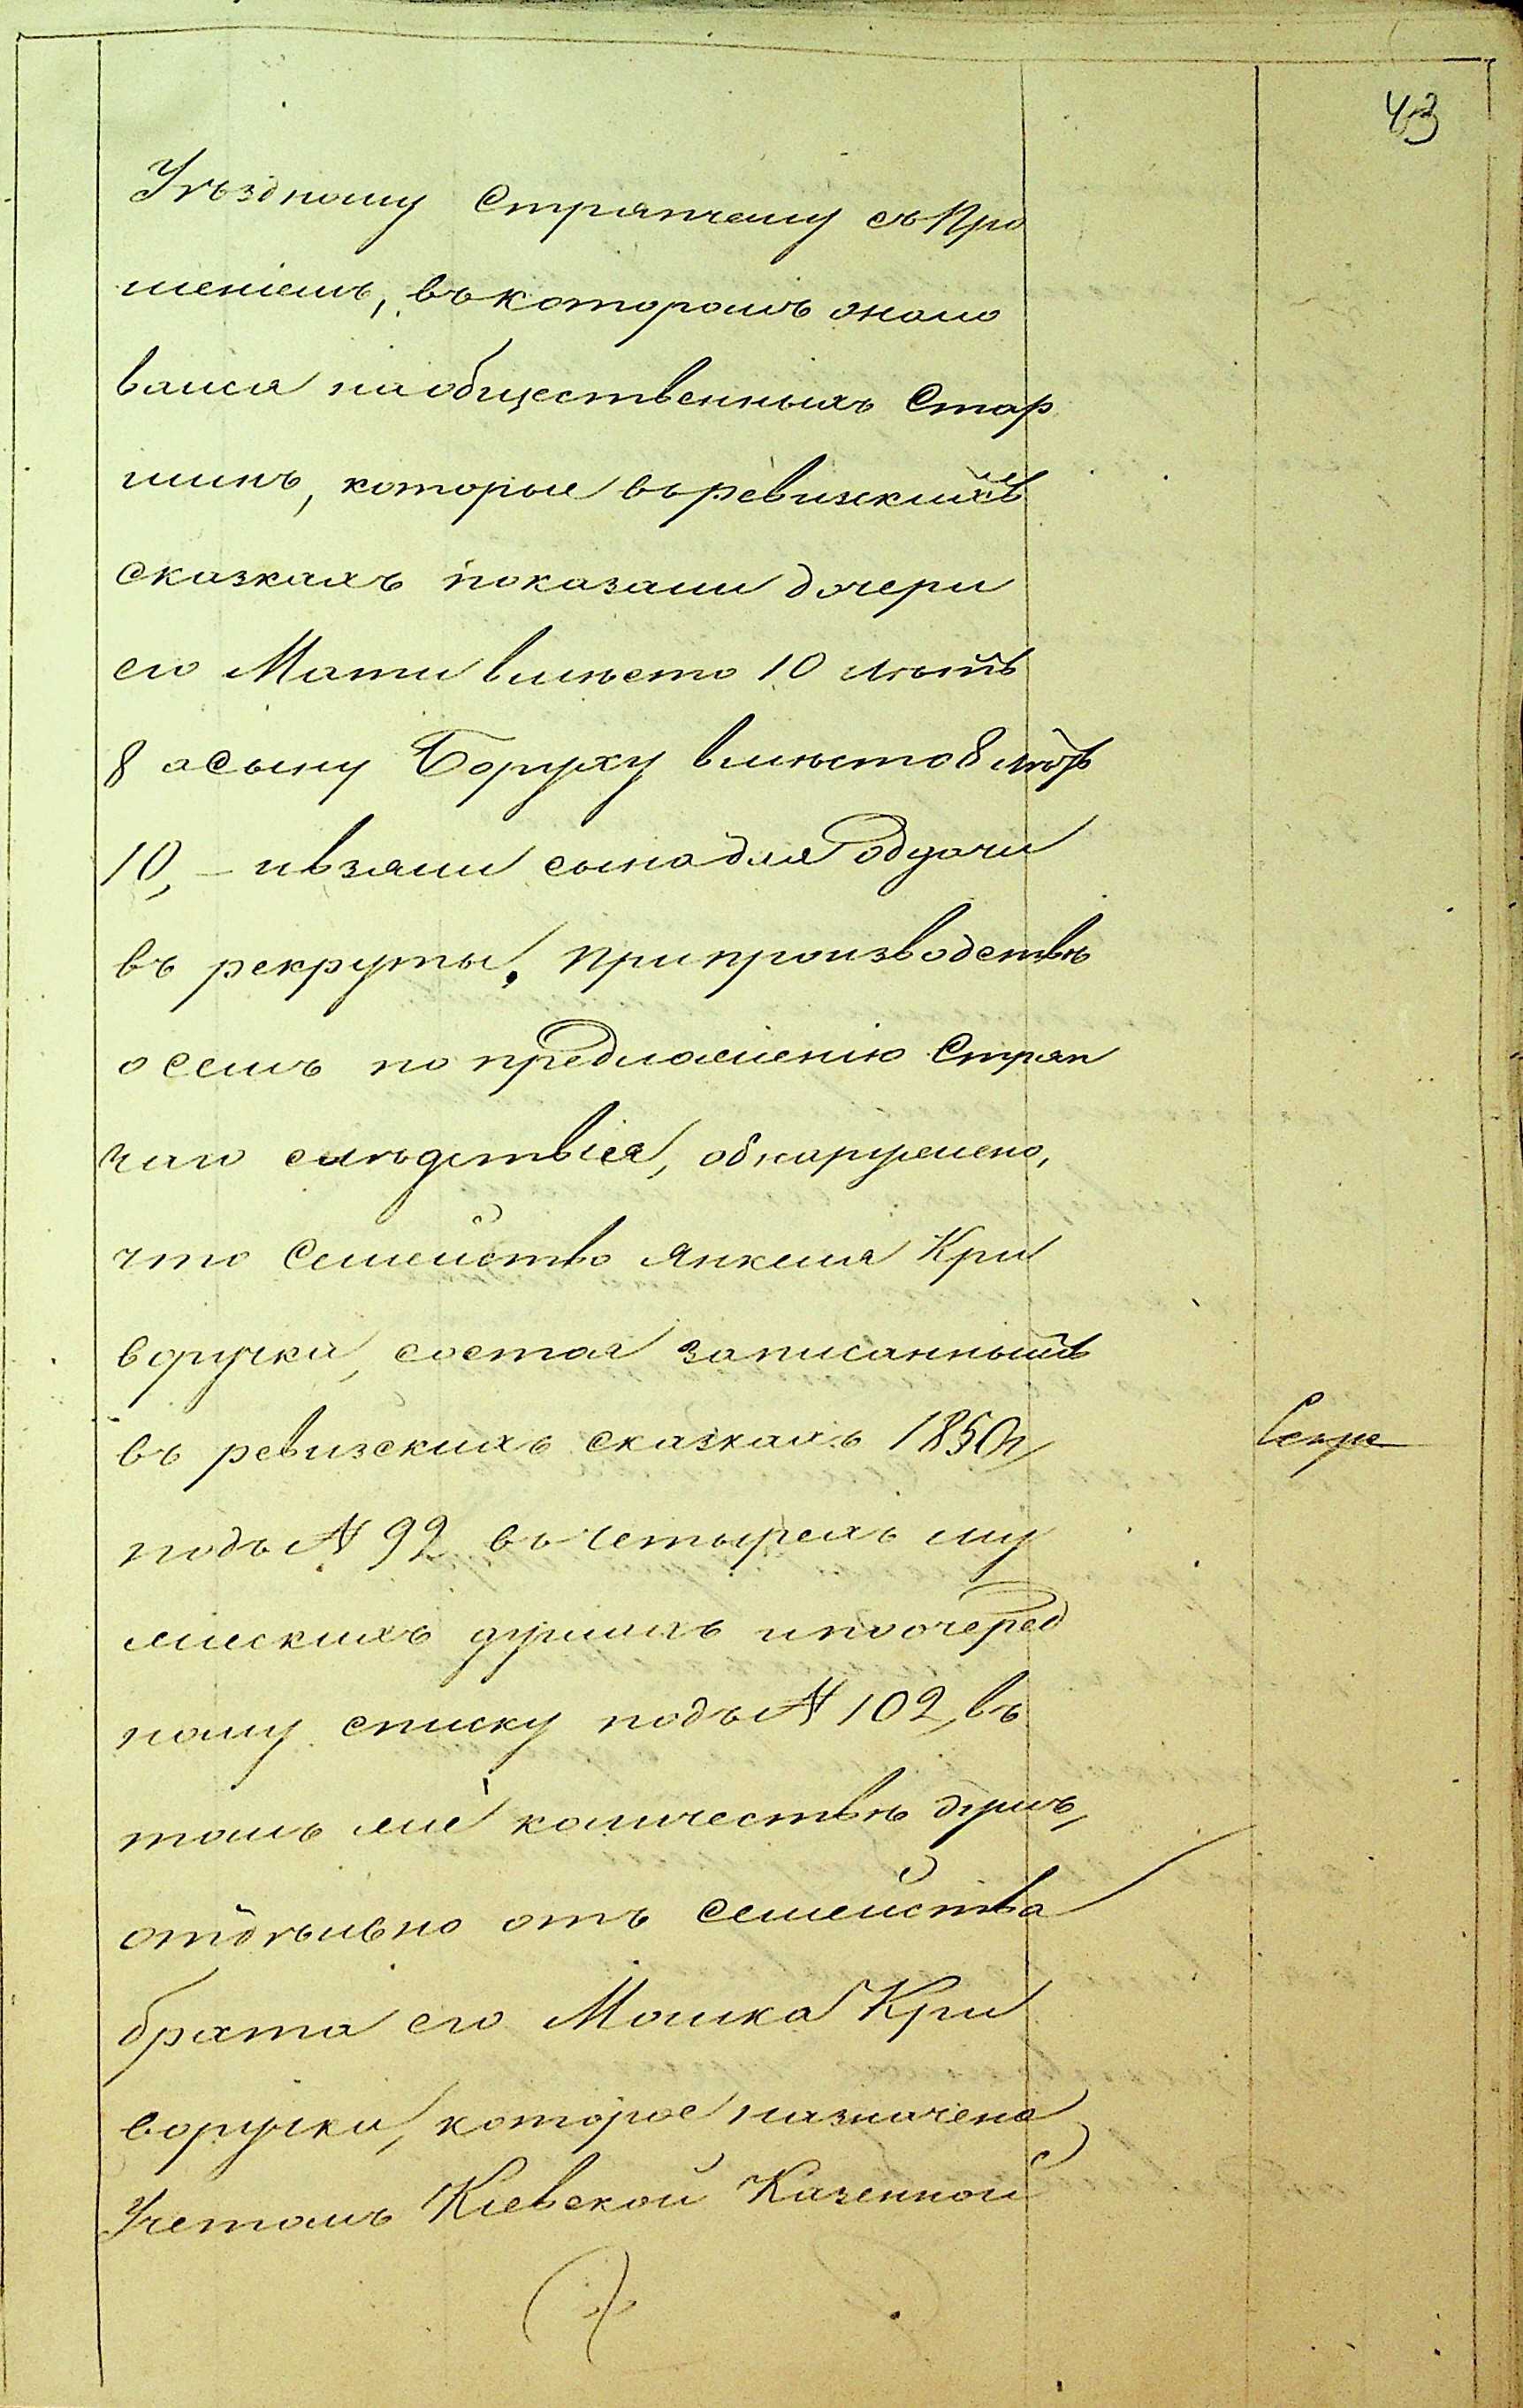 43
Уѣздному Стряпчему съ Про
шеніемъ, въ которомъ жало
вался на общественныхъ Стар
шинъ, которые въ ревизскихъ
сказкахъ показали дочери
его Мати вмѣсто 10 лѣтъ
8 а сыну Боруху вмѣсто 8 лѣтъ
10, – и взяли сына для отдачи
въ рекруты. При производствѣ
о семъ по предложенію Стряп
чаго слѣдствія, обнаружено,
что Семейство Янкеля Кри
воручки, состоя записаннымъ
въ ревизскихъ сказкахъ 1850 г
подъ № 92 въ четырехъ му
жескихъ душахъ и по очеред
ному списку подъ № 102, въ
томъ же количествѣ душъ,
отдѣльно отъ Семейства
брата его Мошка Кри
воручки, которое назначено
Учетомъ Кіевской Казенной
Секре